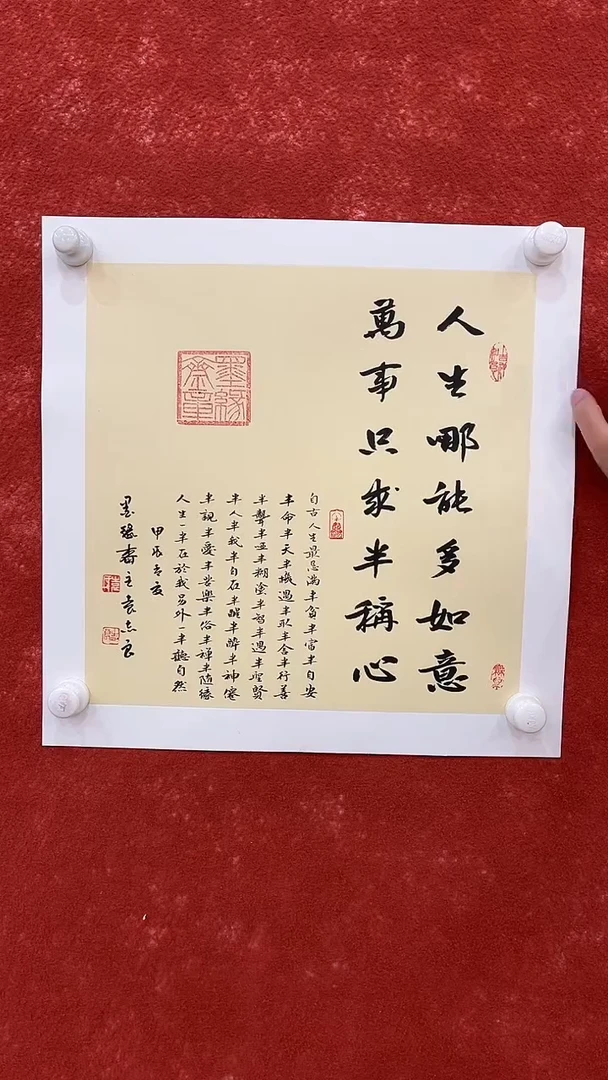 人生哪能多如意
萬事只求半稱心
自古人生最忌滿半貧半富半自安
半命半天半機遇半取半舍半行善
半聾半啞半糊塗半智半愚半聖賢
半人半我半自在半醒半醉半神僊
半親半愛半苦樂半俗半禪半隨緣
人生一半在於我另外一半聽自然
甲辰
墨緣齋主袁志良
墨緣齋章